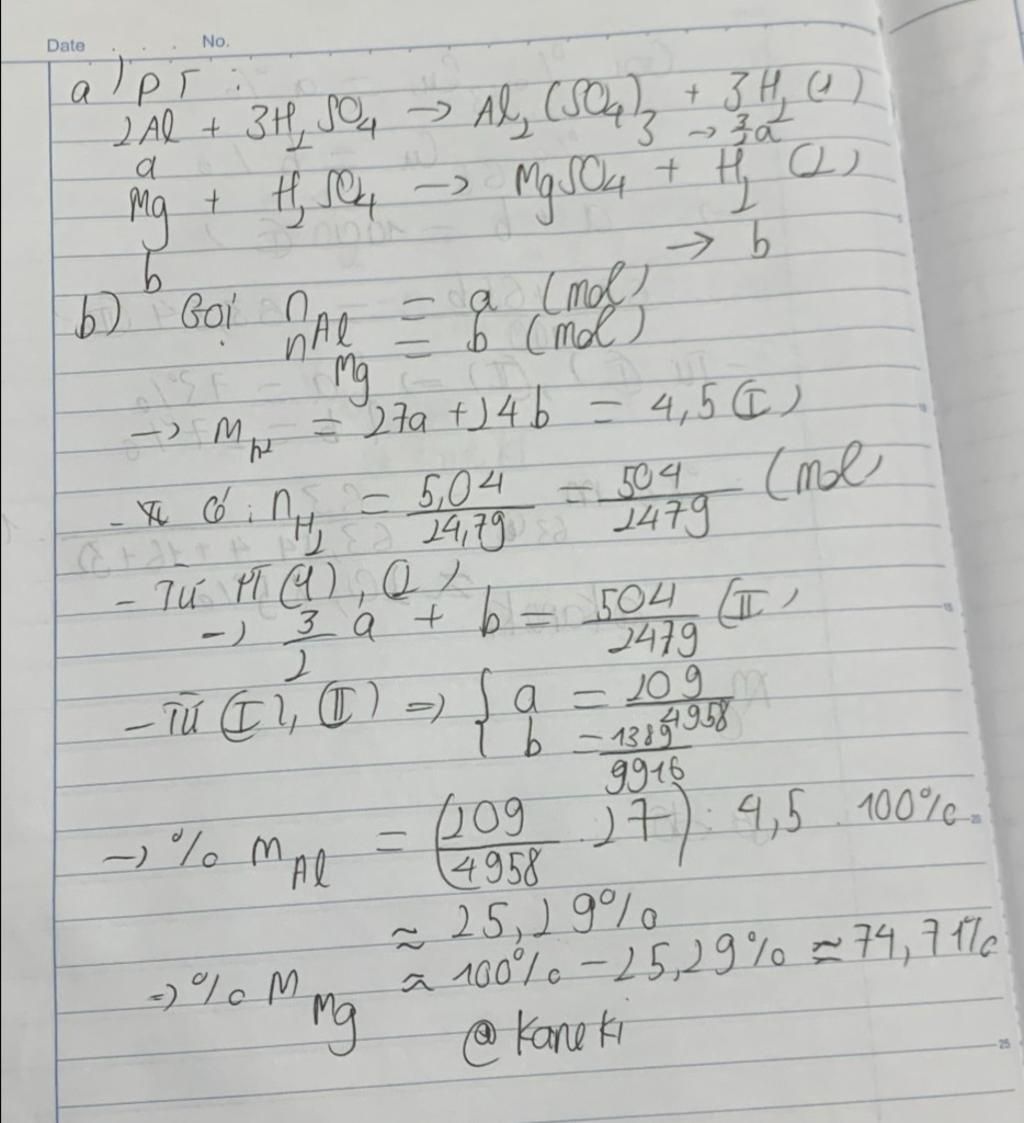 Date . . . No.
a) PT :
2Al + 3H2SO4 → Al2(SO4)3 + 3H2 (1)
a → 3/2a
Mg + H2SO4 → MgSO4 + H2 (2)
b → b
b) Gọi nAl = a (mol)
nMg = b (mol)
→ mhh = 27a + 24b = 4,5 (I)
- Ta có: nH2 = 5,04/24,79 = 504/2479 (mol)
- Từ PT (1), (2)
→ 3/2 a + b = 504/2479 (II)
- Từ (I), (II) ⇒ { a = 209/4958
b = 1389/9916
→ % mAl = (209/4958 . 27) : 4,5 . 100%
≈ 25,29%
⇒ % mMg ≈ 100% - 25,29% ≈ 74,71%
@Kaneki
25